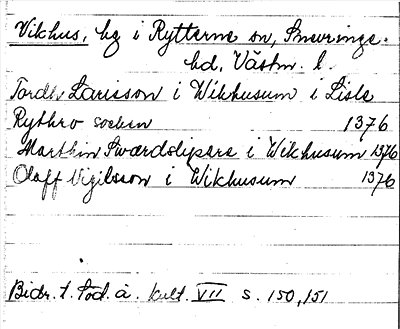 Vikhus, hg i Rytterne sn, Snevringe.
hd, Västm. l.
Tordh Larisson i Wikhusum i Lisla
Rythro socken 1376
Marthin Swærdslipare i Wikhusum 1376
Olaff Vigilsson i Wikhusum 1376
Bidr. t. Söd. å. kult. VII s. 150, 151